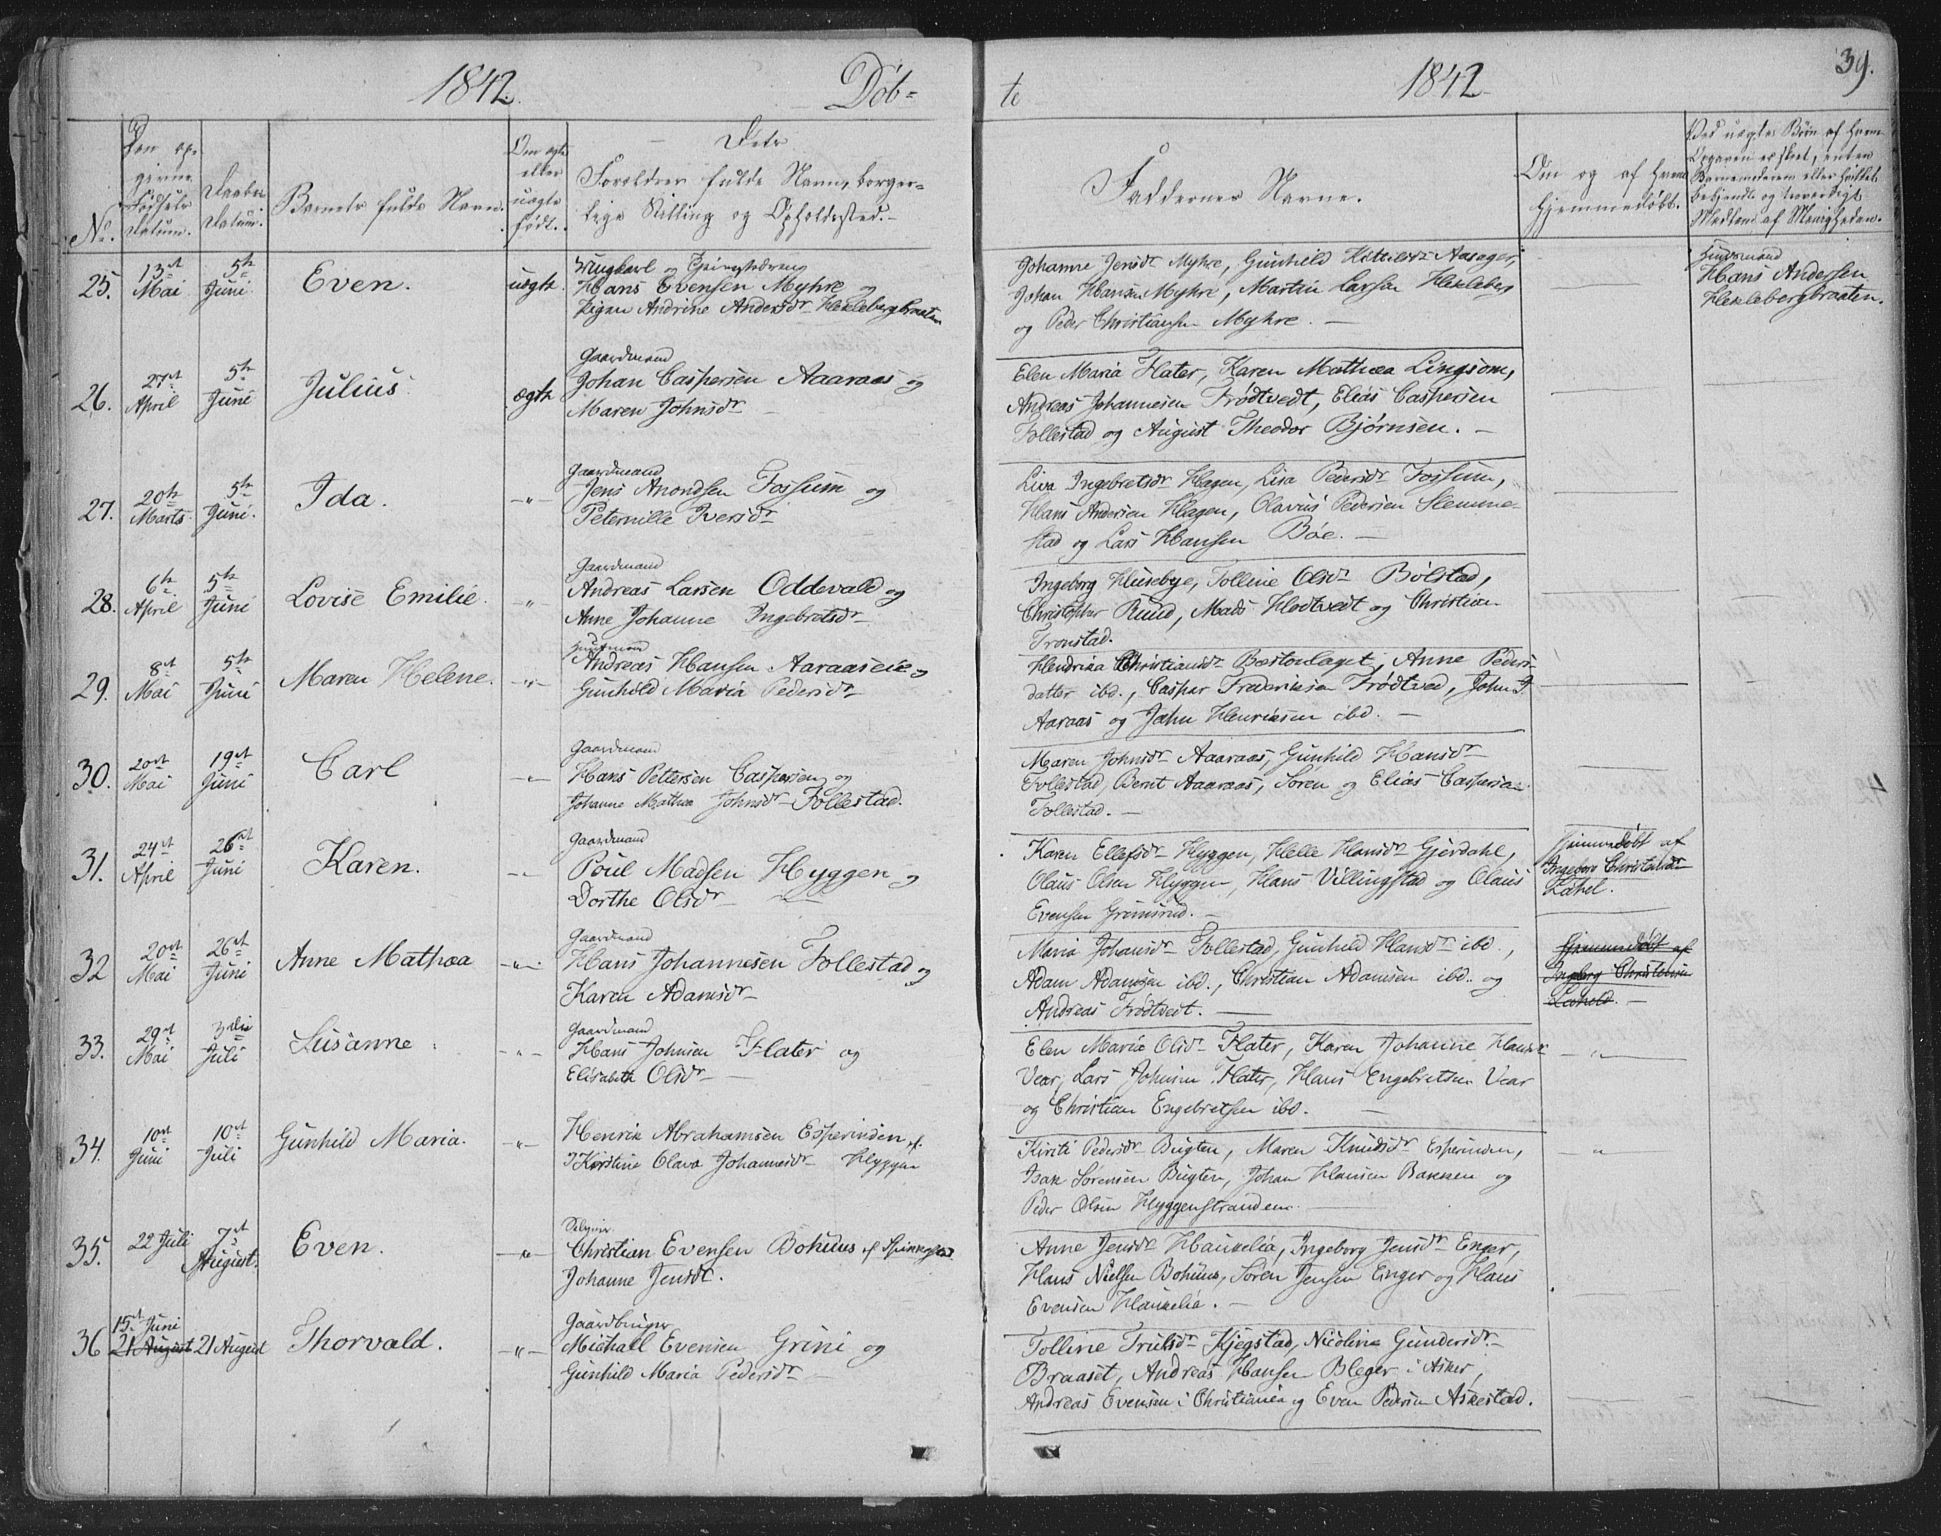 1842. Døb-
No.
Den op-
givne
Fødsels
Datum.
Daabs
Datum.
Barnets fulde Navn.
Om ægte
eller
uægte
født.
Dets
Forældres fulde Navn, borger-
lige Stilling og Opholdssted.
25. 13de Mai 5te Juni Even. uægte
Ungkarl og
Hans Evensen Myhre og
Pigen Andrine Andersdr Heklebergbraaten
26. 27de April 5te Juni Julius ægte
Gaardmand
Johan Caspersen Aaaraas og
Maren Johnsdr
27. 20de Marts 5te Juni. Ida. -"-
Gaardmand
Jens Anondsen Fossum og
Peternille Iversdr
28. 6te April 5te Juni Lovise Emilie. -"-
Gaardmand
Andreas Larsen Oddevald og
Anne Johanne Ingebretsdr
29. 8de Mai 5te Juni Maren Helene. -"-
Andreas Hansen Aaraaseie og
Gunhild Maria Pedersdr
30. 20de Mai 19de Juni Carl -"-
Gaardmand
Hans Pettersen Caspersen og
Johanne Mathea Johnsdr Follestad.
31. 24de April 26de Juni Karen. -"-
Gaardmand
Poul Madsen Hyggen og
Dorthe Olsdr
32 20de Mai 26de Juni Anne Mathæa -"-
Gaardmand
Hans Johannesen Follestad og
Karen Adamsdr
33. 29de Mai 3die Juli Susanne -"-
Gaardmand
Hans Johnsen Flater og
Elisabeth Olsdr
34. 10de Juni 10de Juli Gunhild Maria. -"-
Henrik Abrahamsen Esperinden, &
Kirstine Olava Johannesdr Hyggen
35. 22 Juli 7de August. Even. -"-
Christian Evensen Bohuus &
Johanne Jensdr.
36 15de Juni
21 August 21 August Thorvald. -"-
Gaardbruger
Michael Evensen Grini og
Gunhild Maria Pedersdr
te 1842 39.
Faddernes Navne.
Om og af hvem
hjemmedøbt.
Ved uægte Børn af hvem
Opgaven er skeet, enten
Barnemoderen eller hvilket
bekjendt og troværdigt
Medlem af Menigheden.
Johanne Jensdr Myhre, Gunhild Aasager,
Johan Hansen Myhre, Martin Larsen Hekleberg
og Peder Christiansen Myhre.
Huusmand
Hans Andersen
Heklebergbraaten.
Elen Maria Flater, Karen Mathea Lingsom,
Andreas Johannesen Frødtvedt, Elias Caspersen
Follestad og August Theodor Bjørnsen.
Liva Ingebretsdr Hagen, Lisa Pedersdr Fossum,
Hans Andersen Hagen, Olavus Pedersen Slemme-
stad og Lars Hansen Bøe.
Ingeborg Husebye, Tolline Olsdr Bølstad,
Christopher Ruud, Mads Hødtvedt og Christian
Tronstad.
Hendrika Christiansdr Bæstonlaget, Anne Peders-
datter ibd., Casper Frederiksen Frødtved, John J
Aaraas og John Henriksen ibd.
Maren Johnsdr Aaaraas, Gunhild Hansdr
Follestad, Bernt Aaaraas, Soren og Elias Caspersen
Follestad.
Karen Ellefsdr Hyggen, Helle Hansdr Gjerdahl,
Olaus Olsen Hyggen, Hans Villingstad og Olaus
Evensen Grimsrud.
Hjemmedøbt af
Ingeborg Christensdr
Lahel.
Maria Johansdr Follestad, Gunhild Hansdr ibd.,
Adam Adamsen ibd., Christian Adamsen ibd. og
Andreas Frødtvedt.
Hjemmedøbt af
Ingeborg Christensen
Lahels.
Elen Maria Olsdr Flater, Karen Johanne Hansdr
Vear, Lars Johnsen Flater, Hans Engebretsen Vear
og Christian Engebretsen ibd.
-"-
Kirsti Pedersdr Bugten, Maren Knudsdr Esperinden,
Isak Sørensen Bugten, Johan Hansen Bakken og
Peder Olsen Hyggenstranden.
-"-
Anne Jensdr Haukelia, Ingeborg Jensdr Enger,
Hans Nielsen Bohuus, Søren Jensen Enger og Hans
Evensen Haukelia.
Tolline Trulsdr Kjegstad, Nicoline Gundersdr
Braaset, Andreas Hansen Bleger i Asker,
Andreas Evensen i Christiania og Even Pedersen Askestad.